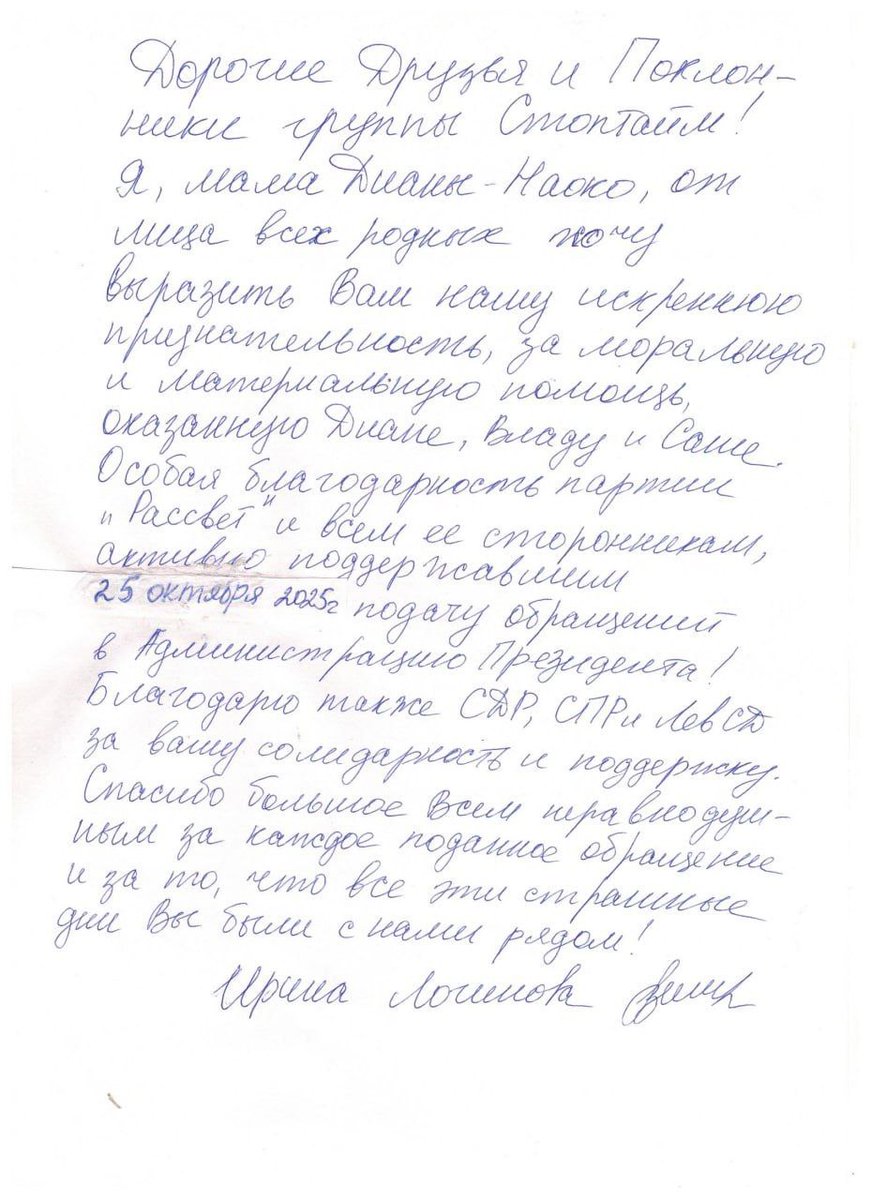 Дорогие Друзья и Поклон-
ники группы Стоптайм!
Я, мама Дианы-Наоко, от
лица всех родных хочу
выразить Вам нашу искреннюю
признательность, за моральную
и материальную помощь,
оказанную Диане, Владу и Саше.
Особая благодарность партии
"Рассвет" и всем ее сторонникам,
активно поддержавшим
25 октября 2025г подачу обращений
в Администрацию Президента!
Благодарю также СДР, СПР и ЛевСД
за вашу солидарность и поддержку.
Спасибо большое Всем неравнодуш-
ным за каждое поданное обращение
и за то, что все эти страшные
дни Вы были с нами рядом!
Ирина Логинова